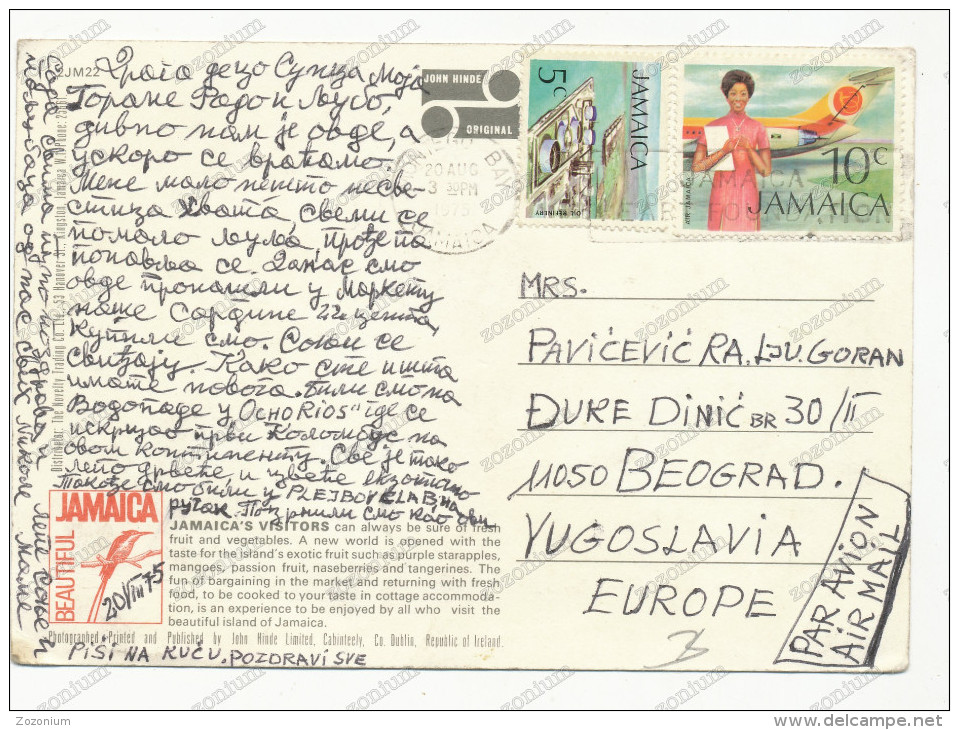 2JM22
Драго децо Сунца моја
Горане Радо и Љубо,
дивно нам је овде, а
ускоро се враћамо.
Мене мало нешто несве-
стица хвата свели се
помало љуља, прође па
понавља се. Данас смо
овде пронашли у Маркету
наше Сардине 22 цента,
Купили смо. Соњи се
свиђају. Како сте и шта
имате новога. Били смо на
Водопаде у OCHO RIOS" где се
искрцао први Коломбус на
овом континенту. Све је тако
лепо дрвеће и цвеће екзотично
Такође смо били у PLEJBOY
на
ручак.
смо као ови
од нас свих Николе Маме
PIŠI NA KUĆU. POZDRAVI SVE
Distributor: The Novelty Trading Co. Ltd., 53 Hanover St., Kingston, Jamaica W.I.
JOHN HINDE
ORIGINAL
20 AUG
3 30PM
1975
JAMAICA
5c
JAMAICA
OIL REFINERY
10c
JAMAICA
AIR JAMAICA
JAMAICA
MRS.
PAVIĆEVIĆ RA. LJU. GORAN
ĐURE DINIĆ BR 30/II
11050 BEOGRAD.
YUGOSLAVIA
EUROPE
PAR AVION
AIR MAIL
JAMAICA
BEAUTIFUL
20/VIII 75
JAMAICA'S VISITORS can always be sure of fresh
fruit and vegetables. A new world is opened with the
taste for the island's exotic fruit such as purple starapples,
mangoes, passion fruit, naseberries and tangerines. The
fun of bargaining in the market and returning with fresh
food, to be cooked to your taste in cottage accommoda-
tion, is an experience to be enjoyed by all who visit the
beautiful island of Jamaica.
Photographed, Printed and Published by John Hinde Limited, Cabinteely, Co. Dublin, Republic of Ireland.
zozonium
Zozonium
http://www.delcampe.net